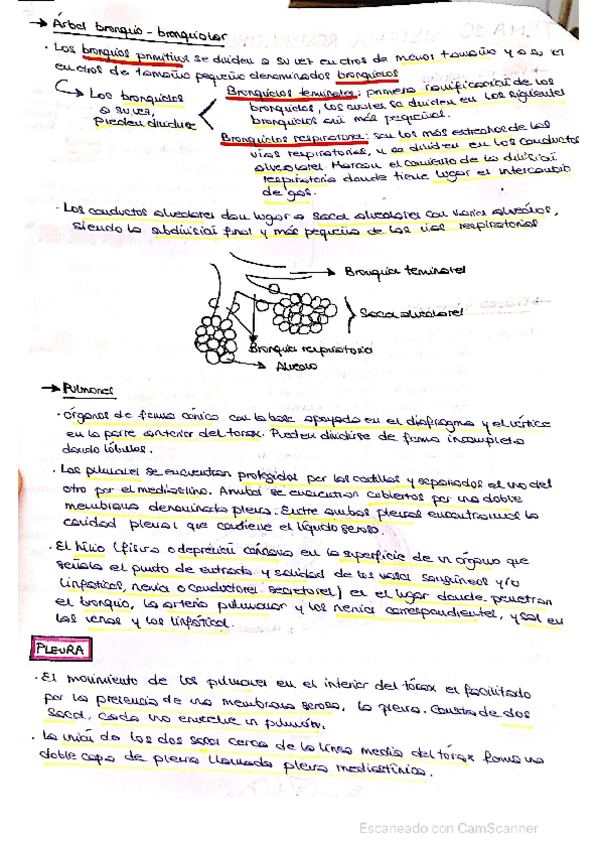 → Árbol bronquio - bronquiolar
· Los bronquios primitivos se dividen a su vez en otros de menor tamaño y a su vez
en otros de tamaño pequeño denominados bronquiolos
Los bronquiolos
a su vez,
pueden dividirse
Bronquiolos terminales: primera ramificación de los
bronquiolos, los cuales se dividen en los siguientes
bronquiolos aún más pequeños.
Bronquiolos respiratorios: son los más estrechos de las
vías respiratorias, y se dividen en los conductos
alveolares. Marcan el comienzo de la división
respiratoria donde tiene lugar el intercambio
de gas.
· Los conductos alveolares dan lugar a sacos alveolares con varios alveolos,
siendo la subdivisión final y más pequeña de las vías respiratorias
Bronquios terminales
Sacos alveolares
Bronquios respiratorios
Alveolo
→ Pulmones
· órganos de forma cónica con la base apoyada en el diafragma y el vértice
en la parte anterior del torax. Pueden dividirse de forma incompleta
dando lóbulos.
· Los pulmones se encuentran protegidos por las costillas y separados el uno del
otro por el mediastino. Ambos se encuentran cubiertos por una doble
membrana denominada pleura. Entre ambas pleuras encontramos la
cavidad pleural que contiene el líquido seroso.
· El hilio (fisura o depresión cóncava en la superficie de un órgano que
señala el punto de entrada y salida de los vasos sanguíneos y/o
linfáticos, nervios o conductores secretores) es el lugar donde penetran
el bronquio, la arteria pulmonar y los nervios correspondientes, y salen
las venas y los linfáticos.
PLEURA
· El movimiento de los pulmones en el interior del tórax es facilitado
por la presencia de una membrana serosa, la pleura. Consta de dos
sacos, cada uno envuelve un pulmón.
· La unión de los dos sacos cerca de la línea media del tórax forma una
doble capa de pleura llamada pleura mediastínica.
Escaneado con CamScanner